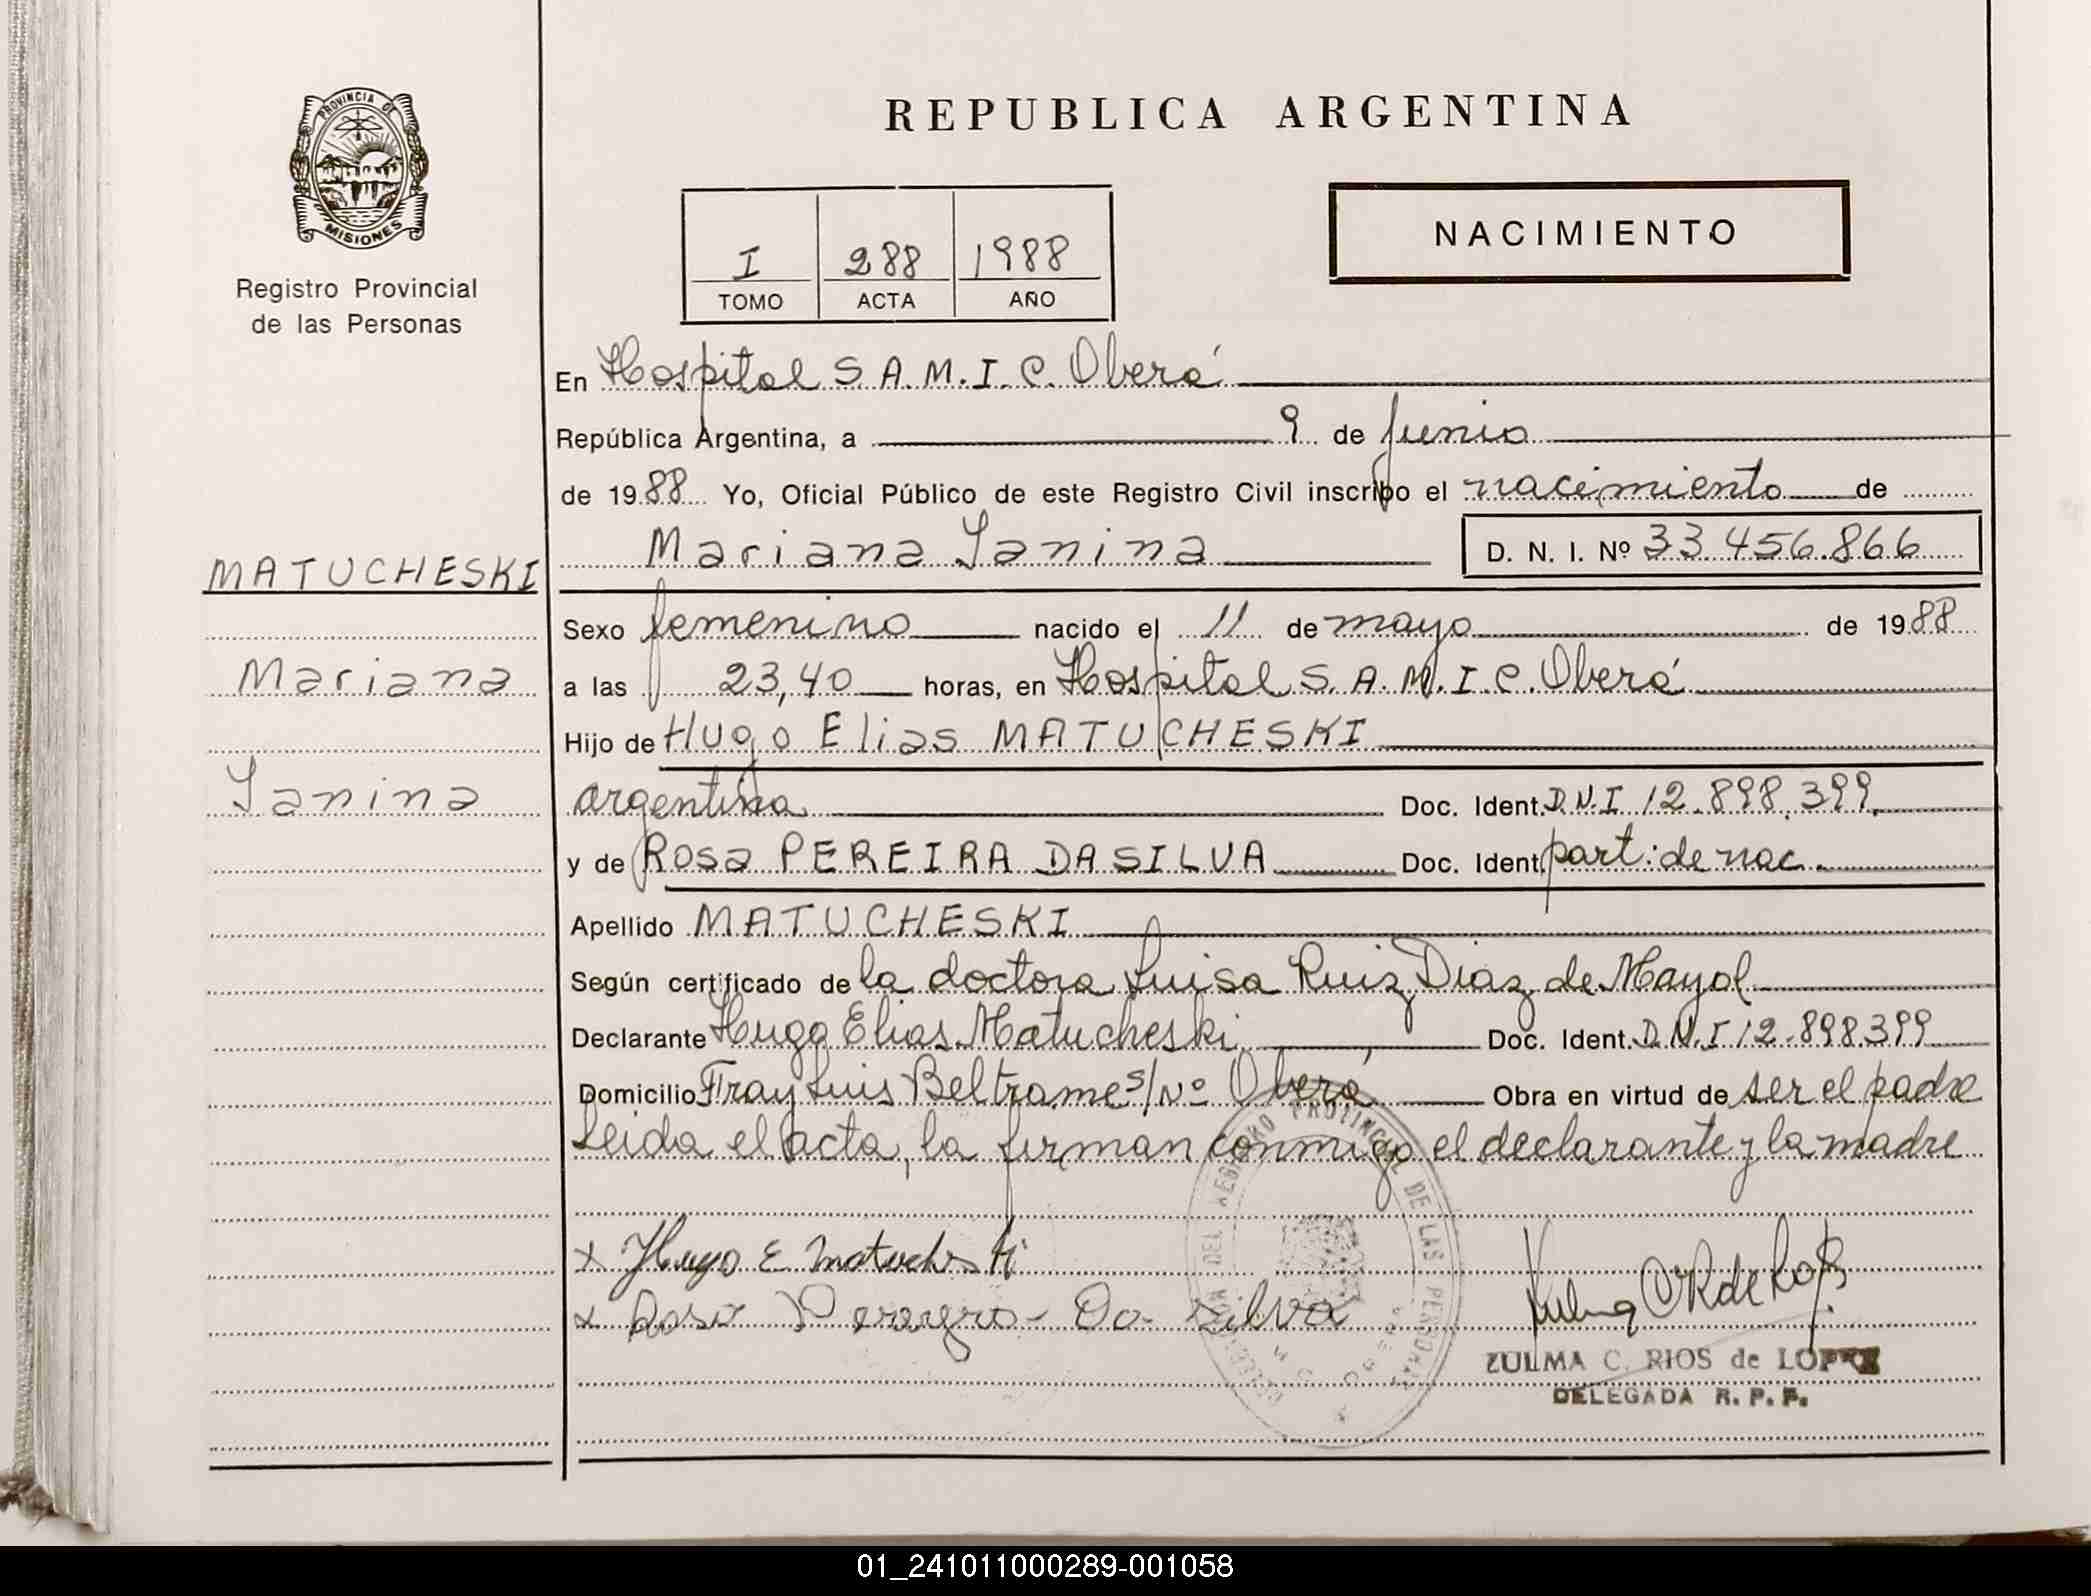 PROVINCIA DE
MISIONES
Registro Provincial
de las Personas
MATUCHESKI
Mariana
Yanina
REPUBLICA ARGENTINA
I 288 1988
TOMO ACTA AÑO
NACIMIENTO
En Hospital S.A.M.I.C. Oberá
República Argentina, a 9 de junio
de 1988 Yo, Oficial Público de este Registro Civil inscribo el nacimiento de
Mariana Yanina D. N. I. Nº 33.456.866
Sexo femenino nacido el 11 de mayo de 1988
a las 23,40 horas, en Hospital S.A.M.I.C. Oberá
Hijo de Hugo Elias MATUCHESKI
argentina Doc. Ident. D.N.I 12.898.399
y de Rosa PEREIRA DA SILVA Doc. Ident. part: de nac.
Apellido MATUCHESKI
Según certificado de la doctora Luisa Ruiz Diaz de Mayol
Declarante Hugo Elias Matucheski Doc. Ident. D.N.I 12.898399
Domicilio Fray Luis Beltrame s/Nº Oberá Obra en virtud de ser el padre
Leida el acta, la firman conmigo el declarante y la madre
x Hugo E Matucheski
x Rosa Da Silva
REGISTRO PROVINCIAL DE LAS PERSONAS
ZULMA C. RIOS de LOPEZ
DELEGADA R. P. P.
01_241011000289-001058